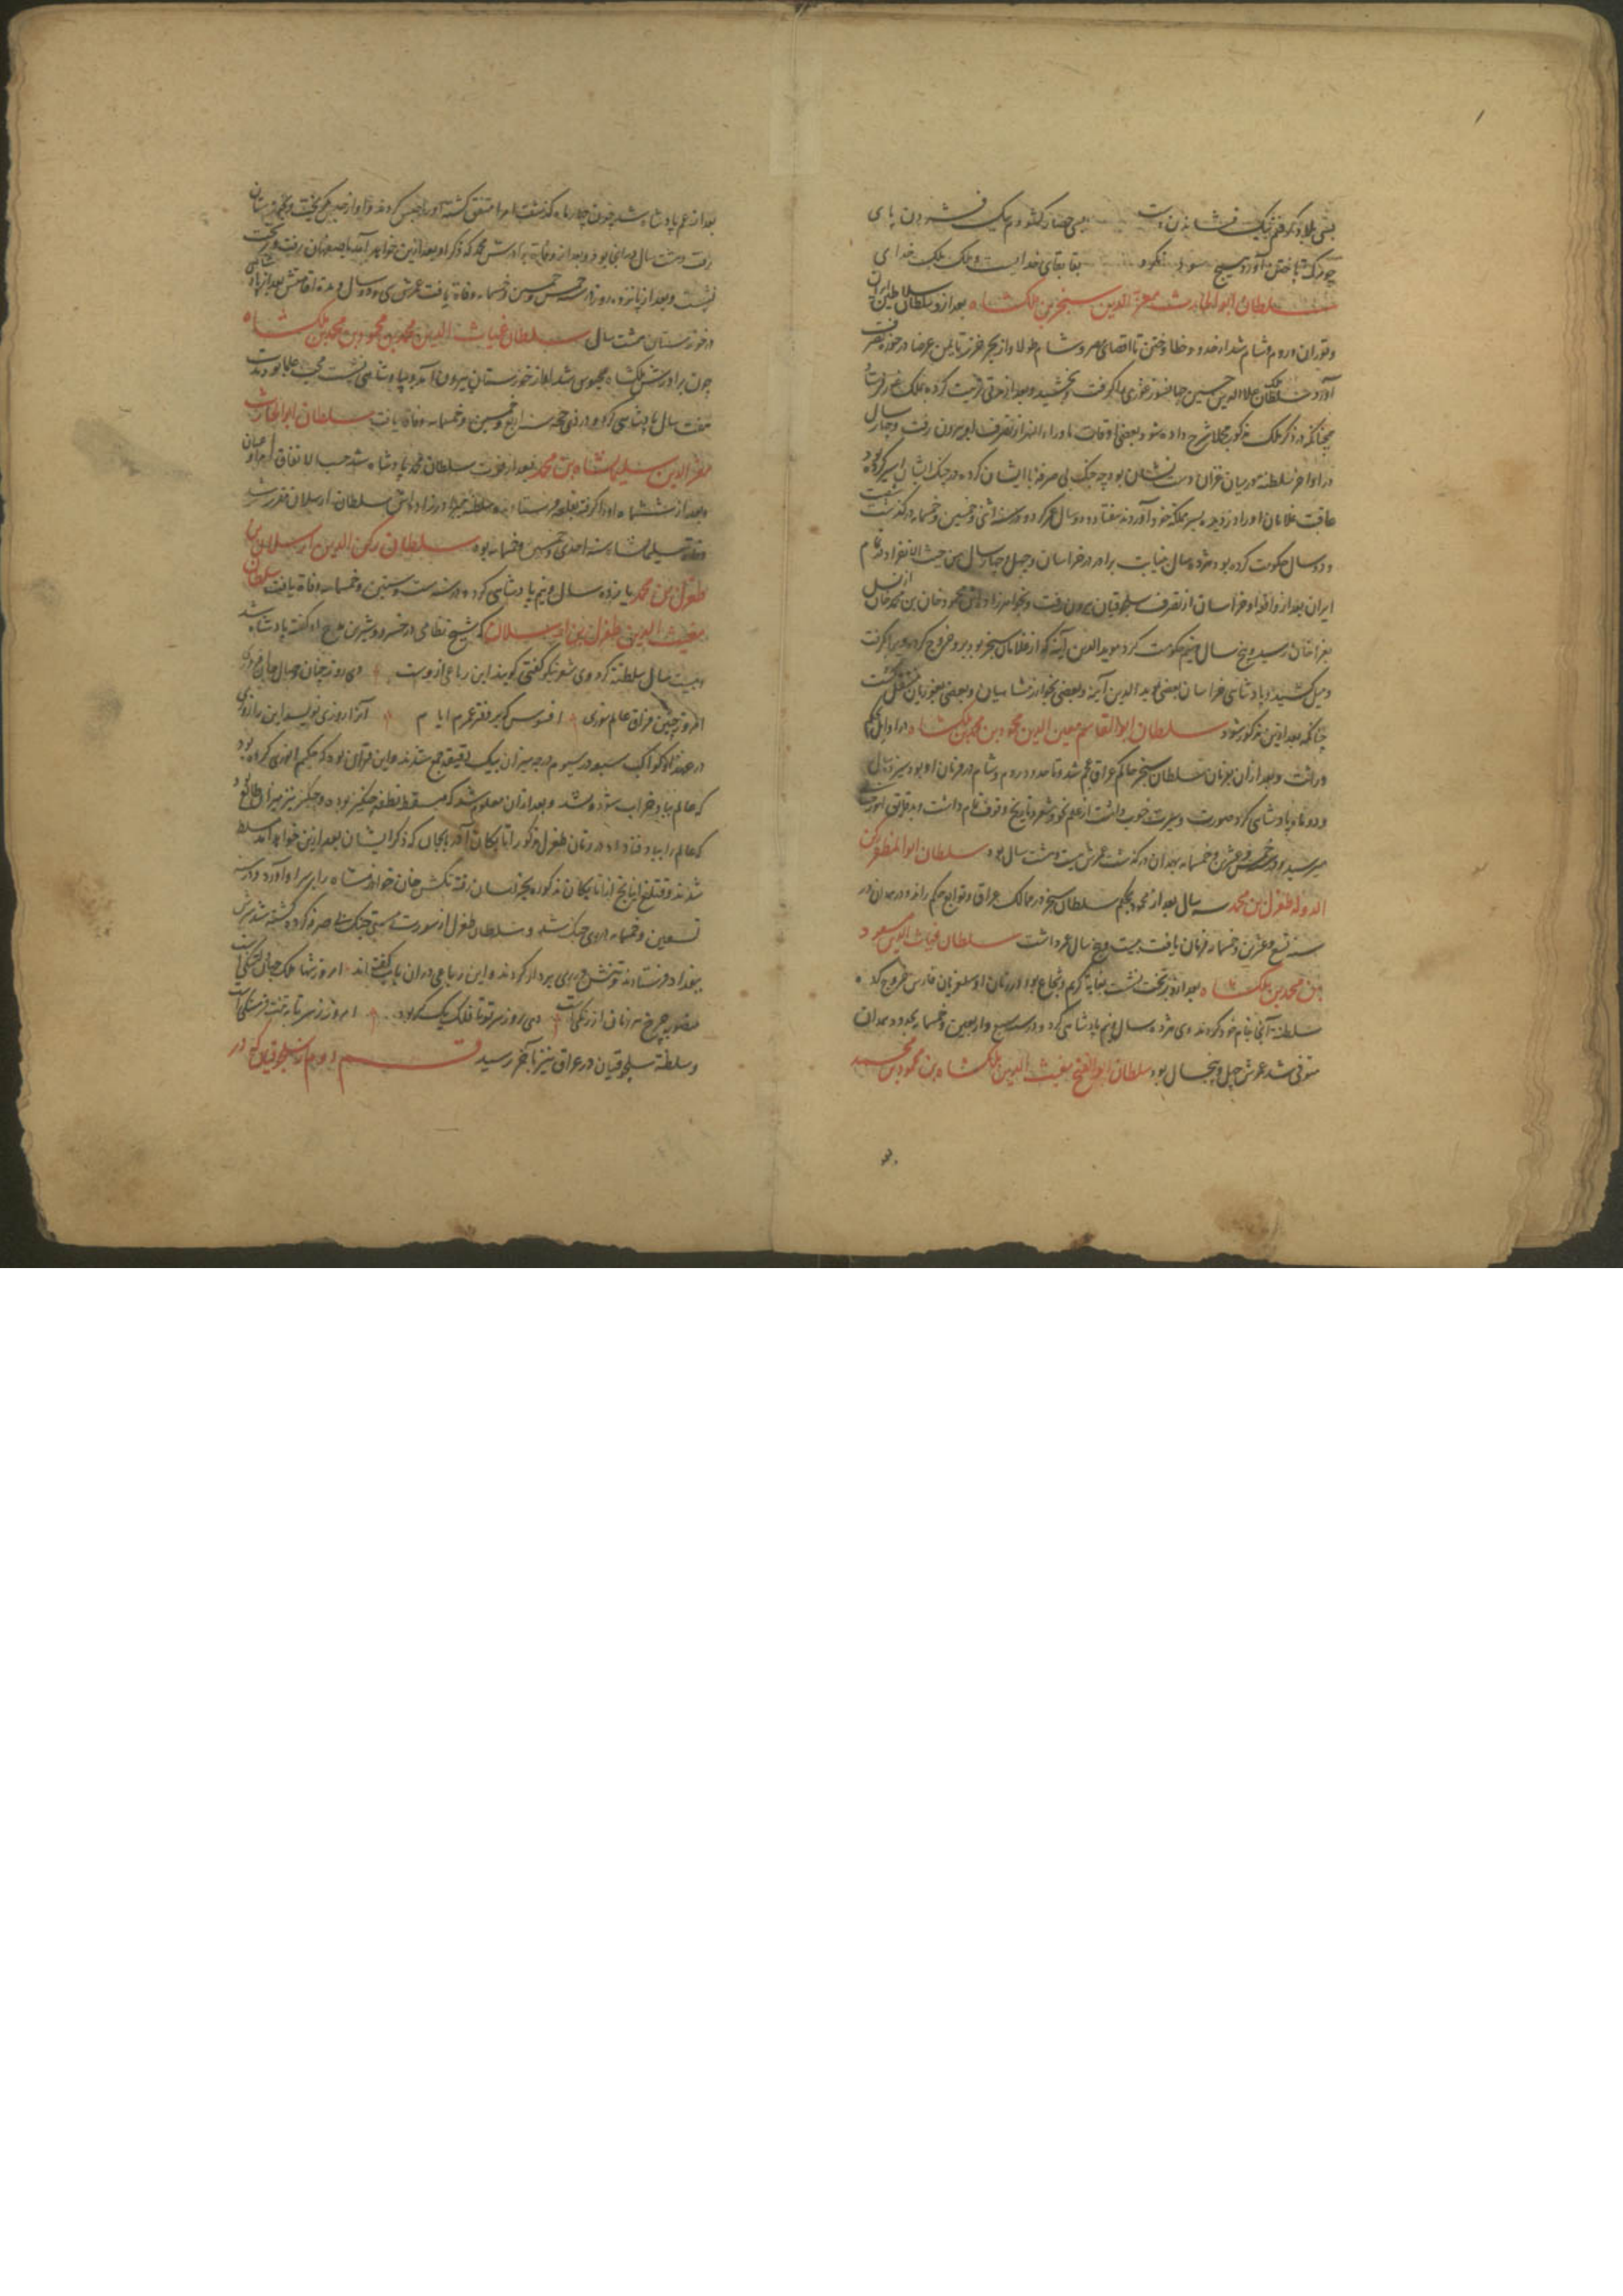 بسی بلاد گرفتم بیک فشاندن دست بسی حصار گشودم بیک فشردن پای
چو مرگ تاختن آورد هیچ سود نکرد بقا بقای خدایست و ملک ملک خدای
سلطان ابوالحارث معزالدین سنجر بن ملکشاه بعد ازو سلطان سلاطین ایران
و توران و روم و شام شد از حدود خطا و ختن تا اقصای مصر و شام طولا و از بحر خزر تا یمن عرضا در حوزه تصرف
آورد سلطان علاالدین حسین جهانسوز غوری را گرفت و بخشید و بعد از مدتی تربیت کرده بملک غور فرستاد
چنانکه در ذکر ملک مذکور مجملا شرح داده شود و بعضی اوقات ماوراءالنهر از تصرف او بیرون رفت و چهار سال
در اواخر سلطنت در میان غزان دست نشان بود چه جنگ بی صرفه با ایشان کرده در جنگ ایشان اسیر گردیده بود
عاقبت غلامان او را دزدیده بسر مملکت خود آوردند هفتاد و دو سال عمر کرد و در سنه اثنی و خمسین و خمسمایه درگذشت
و دو سال حکومت کرده بود هژده سال بنیابت برادر در خراسان و چهل و چهار سال من حیث الانفراد در تمام
ایران بعد از واقعه او خراسان از تصرف سلجوقیان بیرون رفت و بخواهرزاده اش محمود خان بن محمد خان از نسل
بغراخان رسید و پنج سال و نیم حکومت کرد موید الدین آیبه که از غلامان سنجر بود برو خروج کرده ویرا گرفت
و میل کشید و پادشاهی خراسان بعضی بموید الدین آیبه و بعضی بخوارزمشاهیان و بعضی بغوریان منتقل گشت
چنانکه بعد ازین مذکور شود سلطان ابوالقاسم معین الدین محمود بن محمد بن ملکشاه در اوایل بحکم
وراثت و بعد از آن بفرمان سلطان سنجر حاکم عراق عجم شد و تا حدود روم و شام در فرمان او بود سیزده سال
و دو ماه پادشاهی کرد صورت و سیرت خوب داشت از علم نحو و شعر و تاریخ وقوف تمام داشت و بدقایق امور
میرسید و در خمس و عشرین و خمسمایه بهمدان درگذشت عمرش بیست و هشت سال بود سلطان ابوالمظفر رکن
الدوله طغرل بن محمد سه سال بعد از محمود بحکم سلطان سنجر در ممالک عراق و توابع حکم راند و در همدان در
سنه تسع و عشرین و خمسمایه فرمان یافت بیست و پنج سال عمر داشت سلطان غیاث الدین مسعود
بن محمد بن ملکشاه بعد ازو بر تخت نشست بغایة کریم و شجاع بود در زمان او سلغریان فارس خروج کرده
سلطنة آنجا بنام خود کردند وی هژده سال و نیم پادشاهی کرد و در سنه سبع و اربعین و خمسمایه بحدود همدان
متوفی شد عمرش چهل و پنجسال بود سلطان ابوالفتح مغیث الدین ملکشاه بن محمود بن محمد
بعد از عم پادشاه شد چون چهار ماه گذشت امرا متفق گشته او را حبس کردند و او از حبس بگریخت و بخوزستان
رفت و هشت سال در آنجا بود و بعد از وفات برادرش محمد که ذکر او بعد ازین خواهد آمد باصفهان رفت و بر تخت
نشست و بعد از پانزده روز در خمس و خمسین و خمسمایه وفاة یافت عمرش سی و دو سال و مدة اقامتش بعد از پادشاهی
در خوزستان هشت سال سلطان غیاث الدین محمد بن محمود بن محمد بن ملکشاه
چون برادرش ملکشاه محبوس شد او از خوزستان بیرون آمد و بپادشاهی نشست محب علما بود مدت
هفت سال پادشاهی کرد و در ذی حجه سنه اربع و خمسین و خمسمایه وفات یافت سلطان ابوالحارث
معزالدین سلیمانشاه بن محمد بعد از فوت سلطان محمد پادشاه شد حسب الاتفاق امرا و اعیان
و بعد از ششماه او را گرفته بقلعه فرستادند و سلطنة ببرادرزاده اش سلطان ارسلان مقرر شد
وفاة سلیمانشاه سنه احدی و خمسین و خمسمایه بود سلطان رکن الدین ارسلان بن
طغرل بن محمد پانزده سال و نیم پادشاهی کرد و در سنه ست و ستین و خمسمایه وفاة یافت سلطان
مغیث الدین طغرل بن ارسلان که شیخ نظامی در خسرو و شیرین مدح او گفته پادشاه شد
و بیست سال سلطنة کرد وی شعر نیکو گفتی گویند این رباعی ازوست دی روز چنان وصال جان افروزی
امروز چنین فراق عالم سوزی افسوس که بر دفتر عمرم ایام آنرا روزی نویسد این را روزی
در عهد او کواکب سبعه در سیوم درجه میزان بیک دقیقه جمع شدند و این قرآن بود که حکیم انوری حکم کرده بود
که عالم بباد خراب شود و نشد و بعد از آن معلوم شد که مسقط نطفه چنگیز بوده و چنگیز نیز میزان طالع بود
که عالم را بباد فنا داد در زمان طغرل مذکور اتابکان آذربایجان که ذکر ایشان بعد ازین خواهد آمد مسلط
شدند و قتلغ اینانج از اتابکان مذکوره بخراسان رفته تکش خان خوارزمشاه را بر سر او آورد و در سنه
تسعین و خمسمایه در ری جنگ شد و سلطان طغرل از سورت مستی جنگ بی صرفه کرد و کشته شد سرش
ببغداد فرستادند و تنش در ری بر دار کردند و این رباعی در آن باب گفته اند امروز شها ملک جهان دلتنگست
منصوبه چرخ هر زمان از رنگیست دی روز سر تو تا فلک یک گز بود امروز ز سر تا به تنت فرسنگیست
و سلطنة سلجوقیان در عراق نیز بآخر رسید قسم دوم از سلجوقیان که در